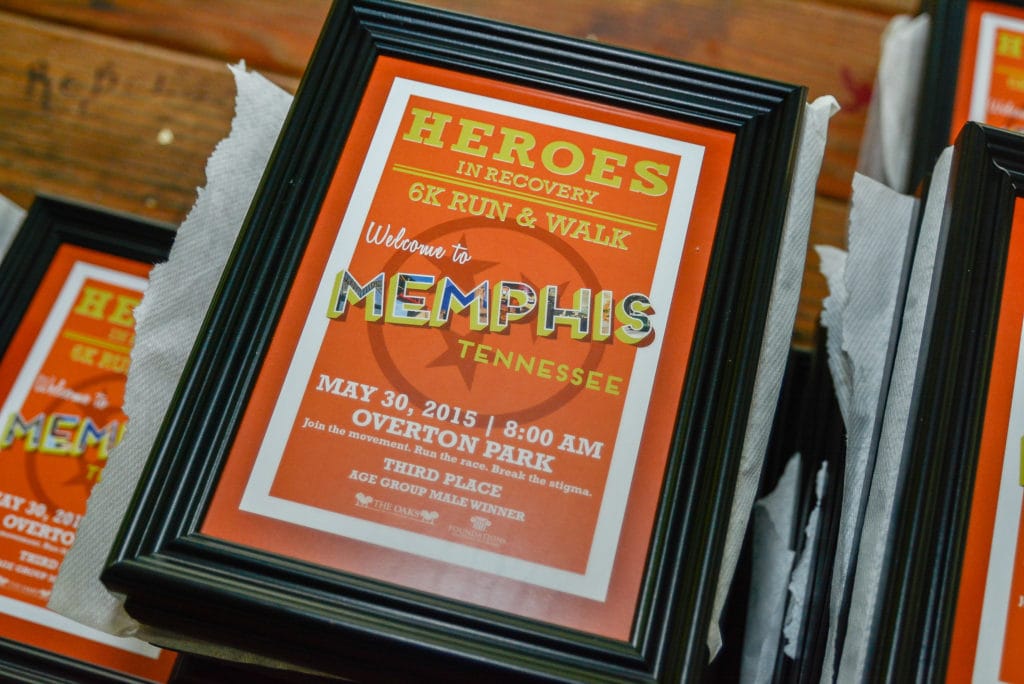 HEROES
IN RECOVERY
6K RUN & WALK
Welcome to
MEMPHIS
TENNESSEE
MAY 30, 2015 | 8:00 AM
OVERTON PARK
Join the movement. Run the race. Break the stigma.
THIRD PLACE
AGE GROUP MALE WINNER
THE OAKS
FOUNDATIONS
HE
IN R
6K RUN
Welcome to
MEM
TE
MAY 30, 201
OVERTO
Join the movement. Run
THIRD
AGE GROUP